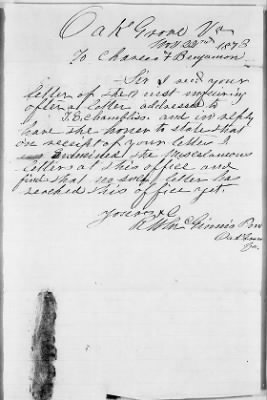 Oak Grove Va
Nov 22nd 1873
To Charles F Benjamin
Sir I recd your
letter of the inst inquiring
after a letter addressed to
T. E. Chambliss. and in reply
have the honor to state that
on receipt of your letter I
Examined the Miscelaneous
letters at this office and
find that no such letter has
reached this office yet
Yours &c
R W McGinnis
Oak Grove
Va.